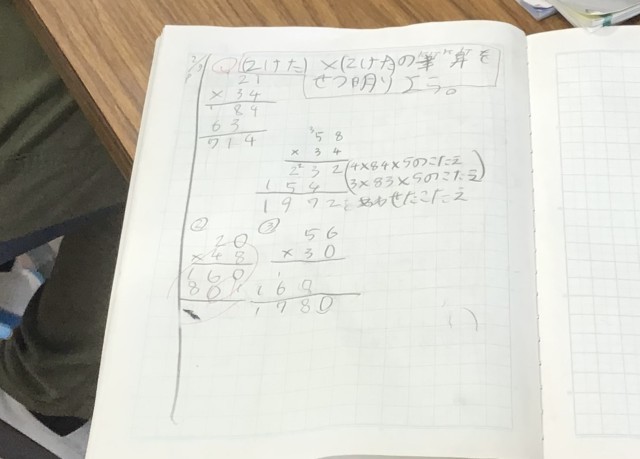 (2けた)×(2けた)の筆算を
せつ明しよう。
21
×34
84
63
714
58
×34
232(4×8 4×5のこたえ
154 3×8 3×5のこたえ)
1972 あわせたこたえ
② 20
×48
160
80
③ 56
×30
168
1780